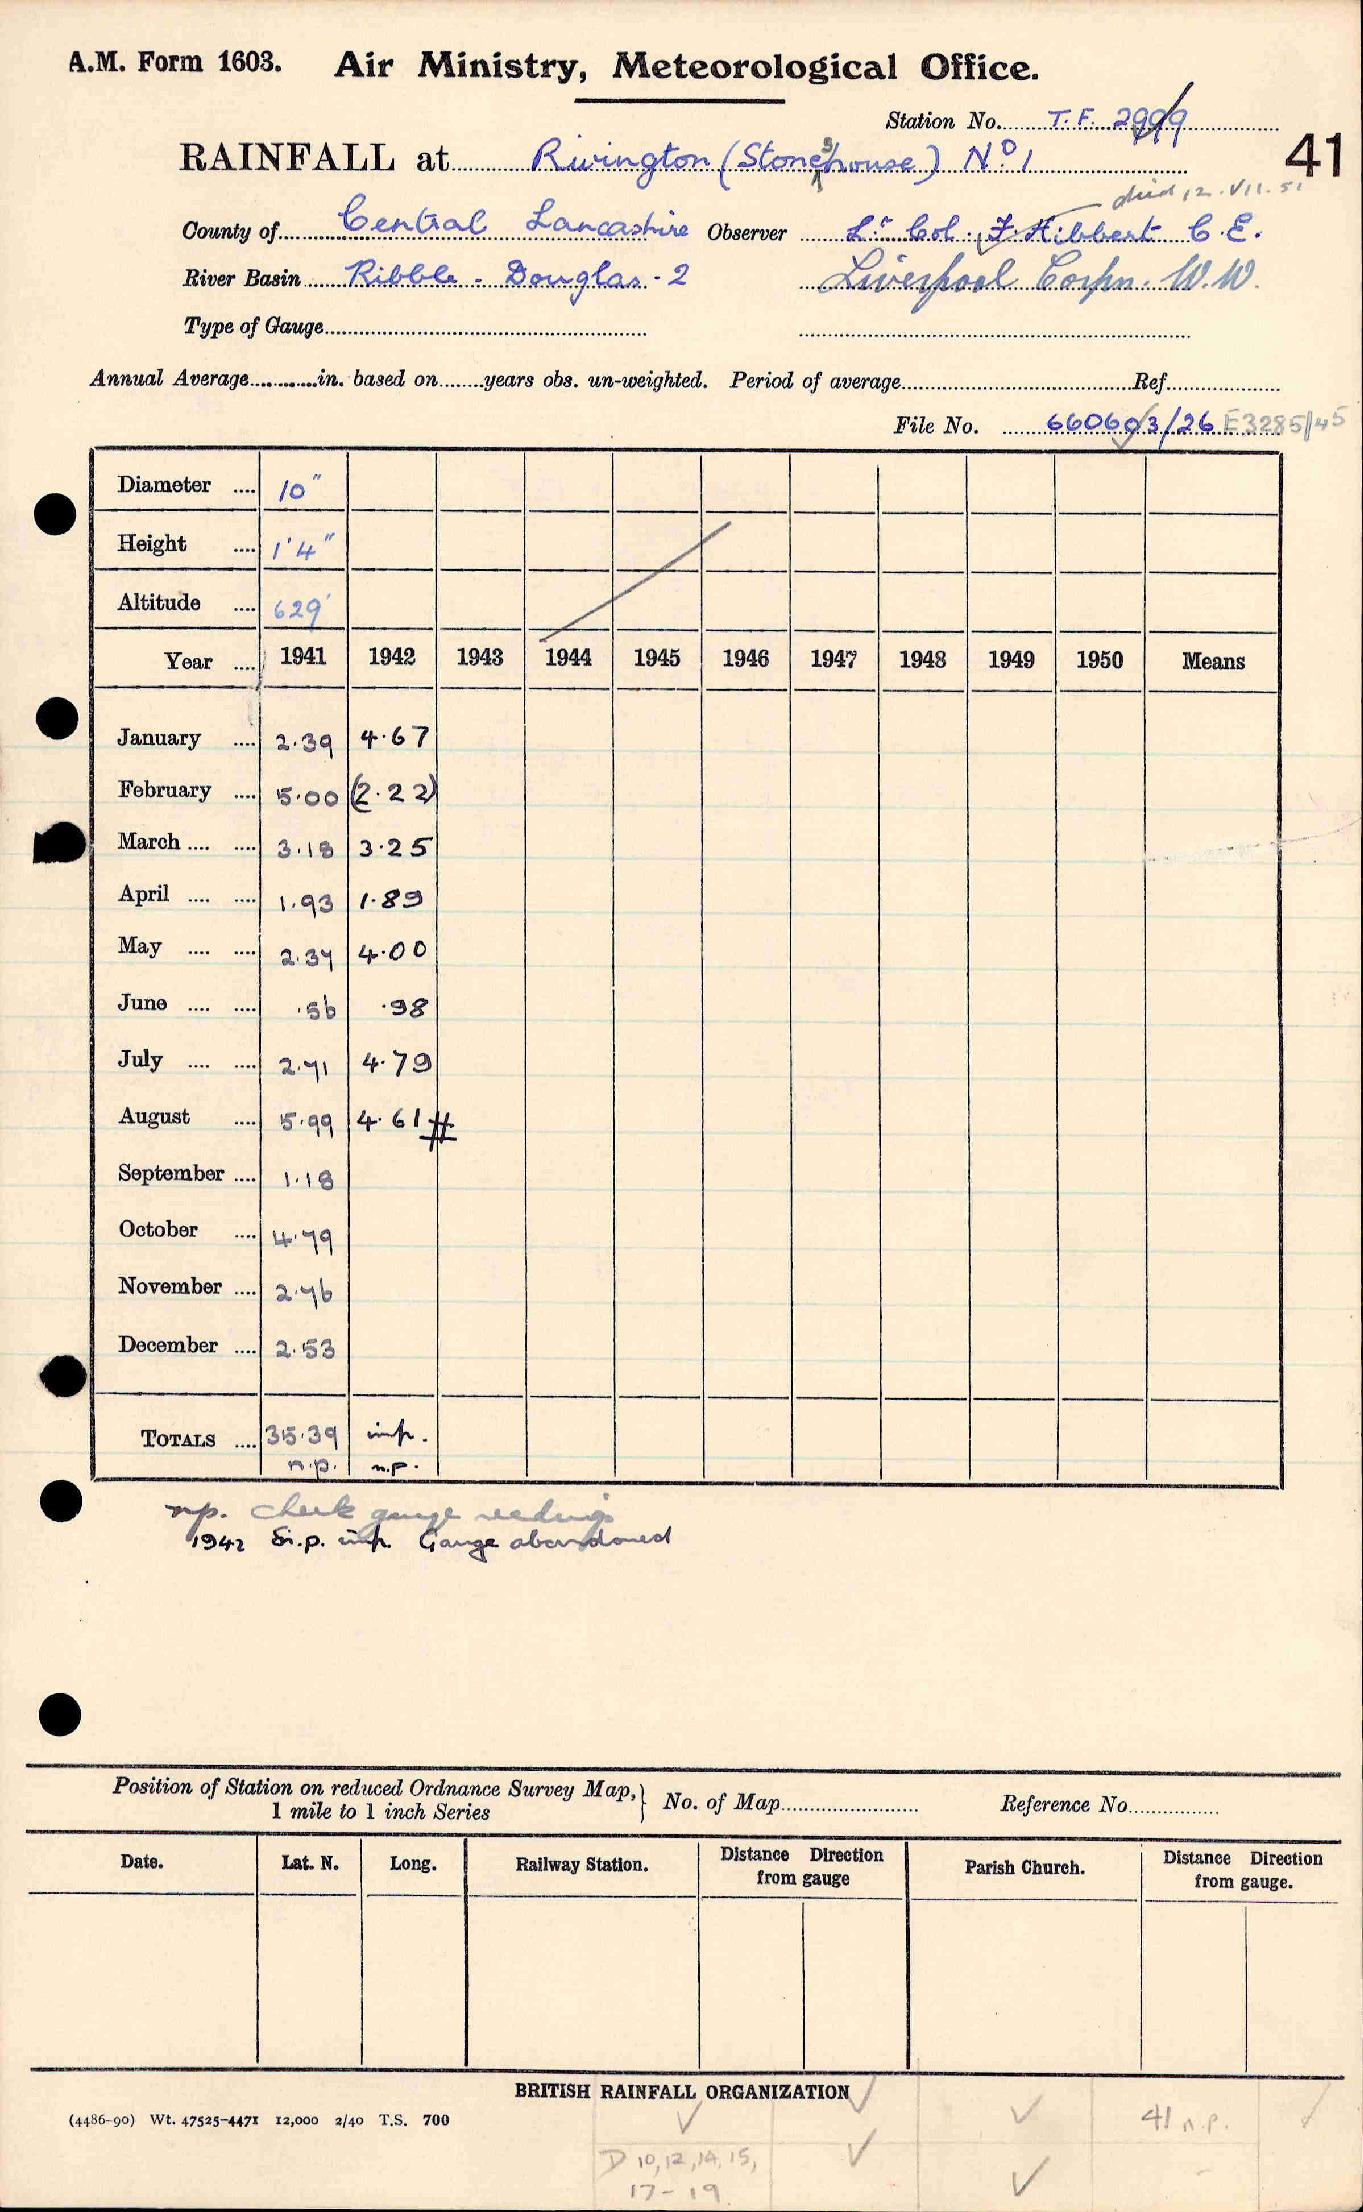 A.M. Form 1603. Air Ministry, Meteorological Office.
Station No. T.F. 2999
41
RAINFALL at Rivington (Stone's house) No 1
died 12.VII.51
County of Central Lancashire Observer Lt. Col. F. Hibbert C.E.
River Basin Ribble - Douglas - 2 Liverpool Corpn. W.W.
Type of Gauge
Annual Average in. based on years obs. un-weighted. Period of average Ref.
File No. 660603/26 E3285/45
Diameter .... 10"
Height .... 1'4"
Altitude .... 629'
Year .... 1941 1942 1943 1944 1945 1946 1947 1948 1949 1950 Means
January .... 2.39 4.67
February .... 5.00 (2.22)
March .... .... 3.18 3.25
April .... .... 1.93 1.89
May .... .... 2.37 4.00
June .... .... .56 .98
July .... .... 2.71 4.79
August .... 5.99 4.61 #
September .... 1.18
October .... 4.79
November .... 2.76
December .... 2.53
TOTALS .... 35.39 imp.
n.p. n.p.
np. check gauge readings
1942 imp. Gauge abandoned
Position of Station on reduced Ordnance Survey Map, } No. of Map Reference No.
1 mile to 1 inch Series
Date. Lat. N. Long. Railway Station. Distance Direction from gauge Parish Church. Distance Direction from gauge.
BRITISH RAINFALL ORGANIZATION
(4486-90) Wt. 47525-4471 12,000 2/40 T.S. 700
41 n.p.
D 10,12,14,15,
17-19